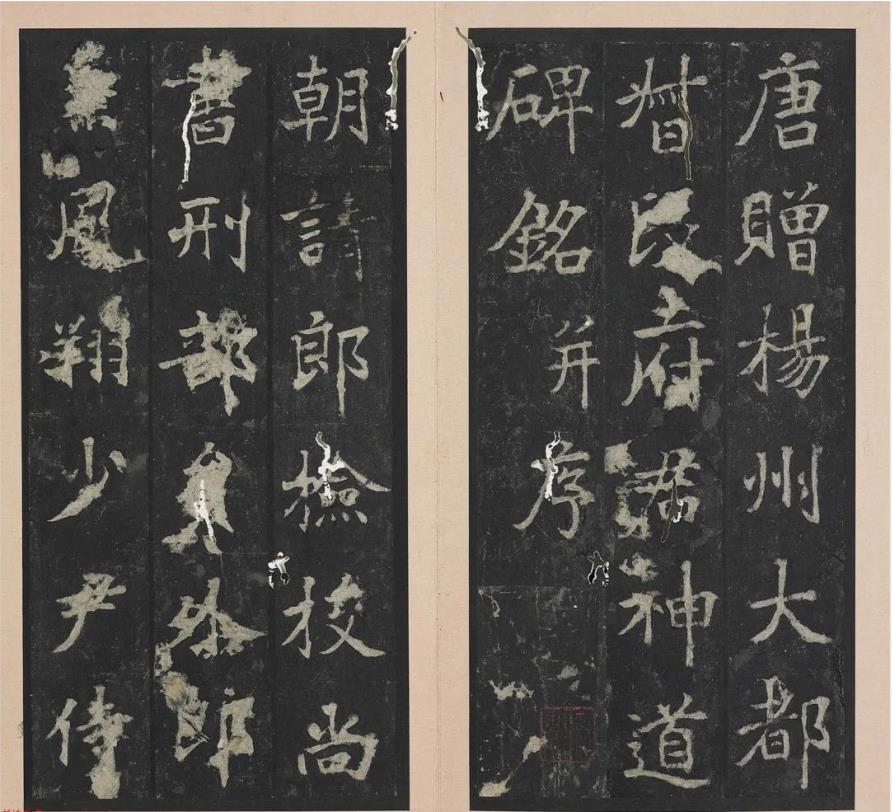 唐贈楊州大都
督段府君神道
碑銘并序
朝請郎檢校尚
書刑部員外郎
兼鳳翔少尹侍